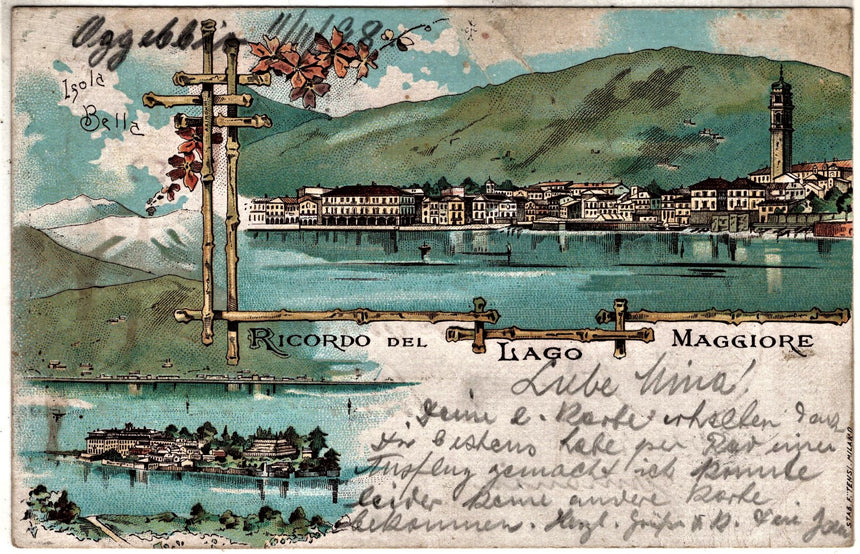 Oggebbio 11/4/98
Isola
Bella
RICORDO DEL LAGO MAGGIORE
Liebe Mina!
Deine l. Karte erhalten danke
dir bestens habe per Rad einen
Ausflug gemacht ich konnte
leider keine andere Karte
bekommen. Herzl. Grüße
STAB. A. TENSI MILANO